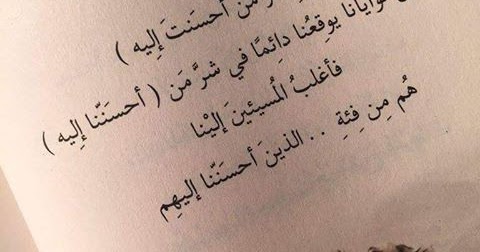 شر من أحسنت إليه )
نوايانا يوقِعُنا دائِمًا في شرَّ مَن ( أحسَنّنا إليه )
فأغلبُ المُسيئينَ إليْنا
هُم مِن فِئةِ . . الذينَ أحسَنّنا إليهِم